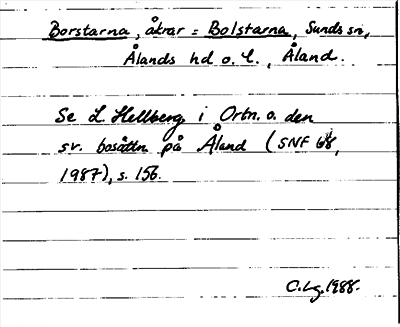 Borstarna, åkrar = Bolstarna, Sunds sn,
Ålands hd o. l., Åland.
Se L Hellberg i Ortn. o. den
sv. bosättn på Åland (SNF 68,
1987), s. 156.
C.Lg. 1988.